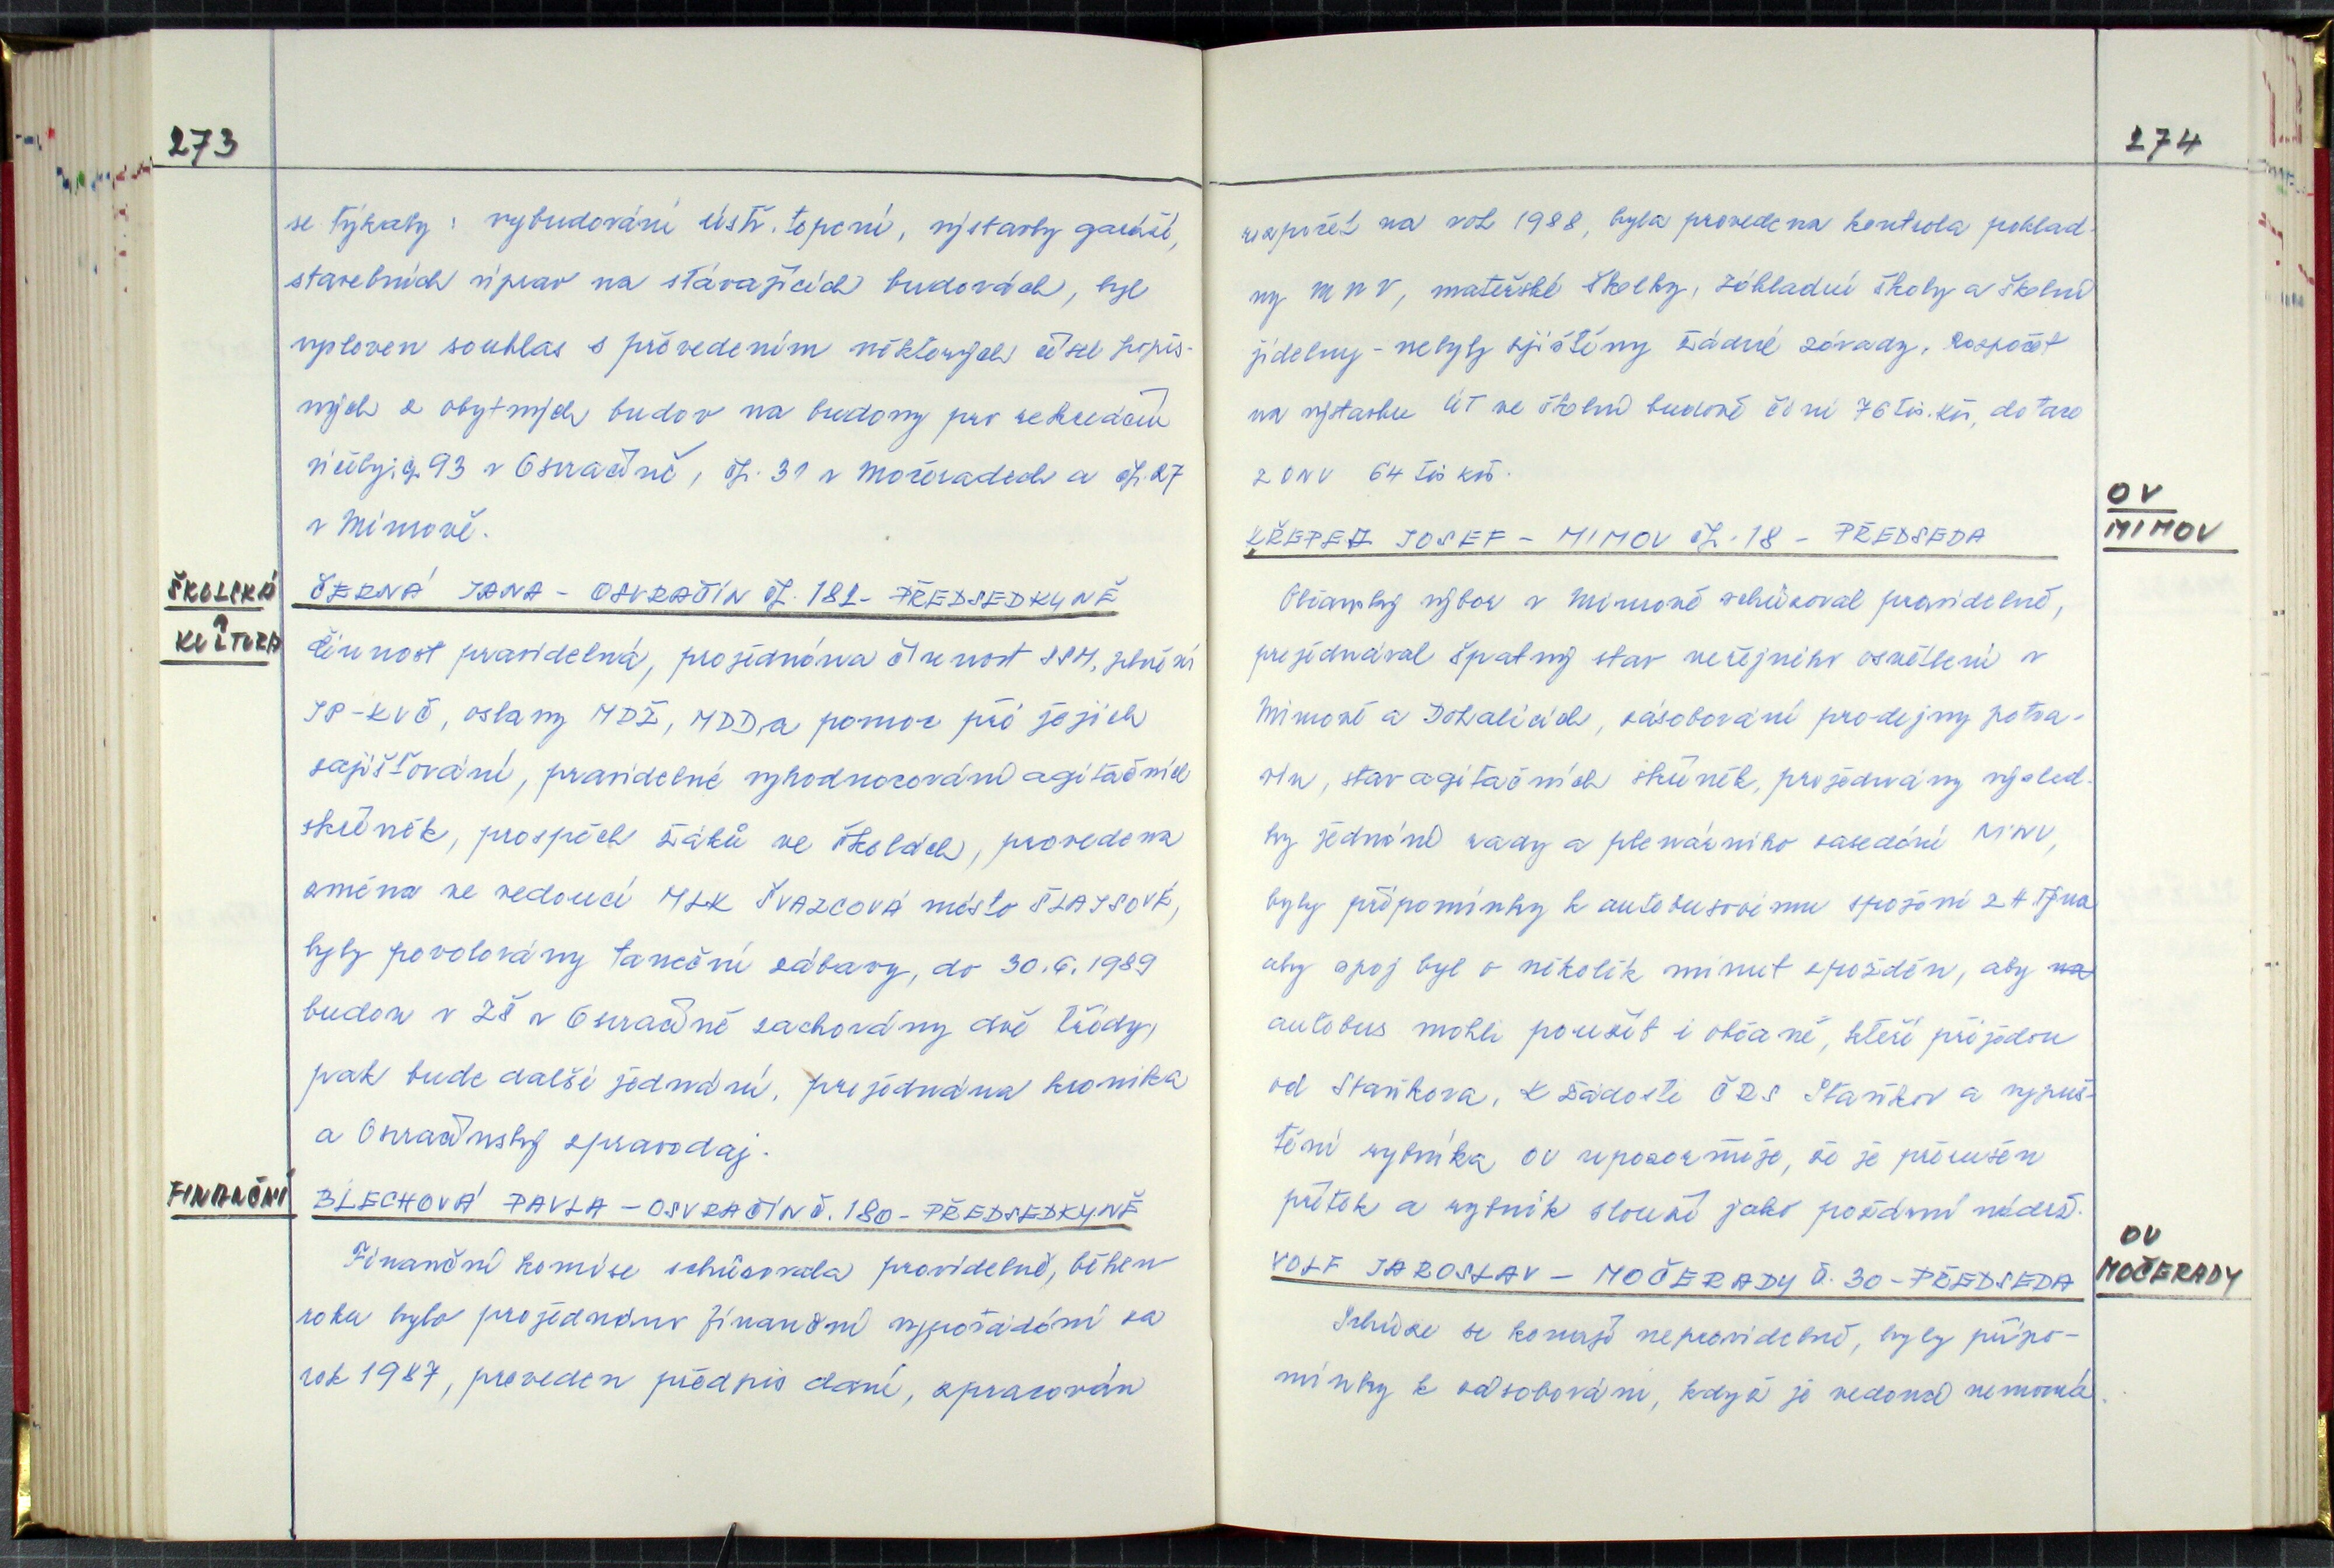 273
se týkaly: vybudování ústř. topení, výstavby garáží,
stavebních úprav na stávajících budovách, byl
vysloven souhlas s převedením některých čísel popis-
ných z obytných budov na budovy pro rekreační
účely: čp. 93 v Osvračíně, čp. 31 v Močeradech a čp. 27
v Mimově.
ŠKOLSKÁ
A
KULTURA
ČERNÁ JANA - OSVRAČÍN čp. 182 - PŘEDSEDKYNĚ
Činnost pravidelná, projednána činnost SSM, plnění
JP-KVČ, oslavy MDŽ, MDD, a pomoc při jejich
zajišťování, pravidelné vyhodnocování agitačních
skříněk, prospěch žáků ve školách, provedena
změna ve vedoucí MLK ŠVARCOVÁ místo ŠLAJSOVÉ,
byly povolovány taneční zábavy, do 30.6.1989
budou v ZŠ v Osvračíně zachovány dvě třídy,
pak bude další jednání, projednána kronika
a Osvračínský zpravodaj.
FINANČNÍ
BLECHOVÁ PAVLA - OSVRAČÍN č. 180 - PŘEDSEDKYNĚ
Finanční komise schůzovala pravidelně, během
roku bylo projednáno finanční vypořádání za
rok 1987, proveden předpis daní, zpracován
274
rozpočet na rok 1988, byla provedena kontrola poklad-
ny MNV, mateřské školky, základní školy a školní
jídelny - nebyly zjištěny žádné závady. Rozpočet
na výstavbu ÚT ve školní budově činí 76 tis. kčs, dotace
z ONV 64 tis kčs.
OV
MIMOV
JOSEF - MIMOV čp. 18 - PŘEDSEDA
Občanský výbor v Mimově schůzoval pravidelně,
projednával špatný stav veřejného osvětlení v
Mimově a Dohalicích, zásobování prodejny potra-
vin, stav agitačních skříněk, projednávány výsled-
ky jednání rady a plenárního zasedání MNV,
byly připomínky k autobusovému spojení z H. Týna
aby spoj byl o několik minut zpožděn, aby na
autobus mohli použít i občané, kteří přijedou
od Staňkova. K žádosti ČRS Staňkov a vypuš-
tění rybníka OV upozorňuje, že je přerušen
přítok a rybník slouží jako požární nádrž.
OV
MOČERADY
VOLF JAROSLAV - MOČERADY č. 30 - PŘEDSEDA
Schůze se konají nepravidelně, byly připo-
mínky k zásobování, když je vedoucí nemocná.